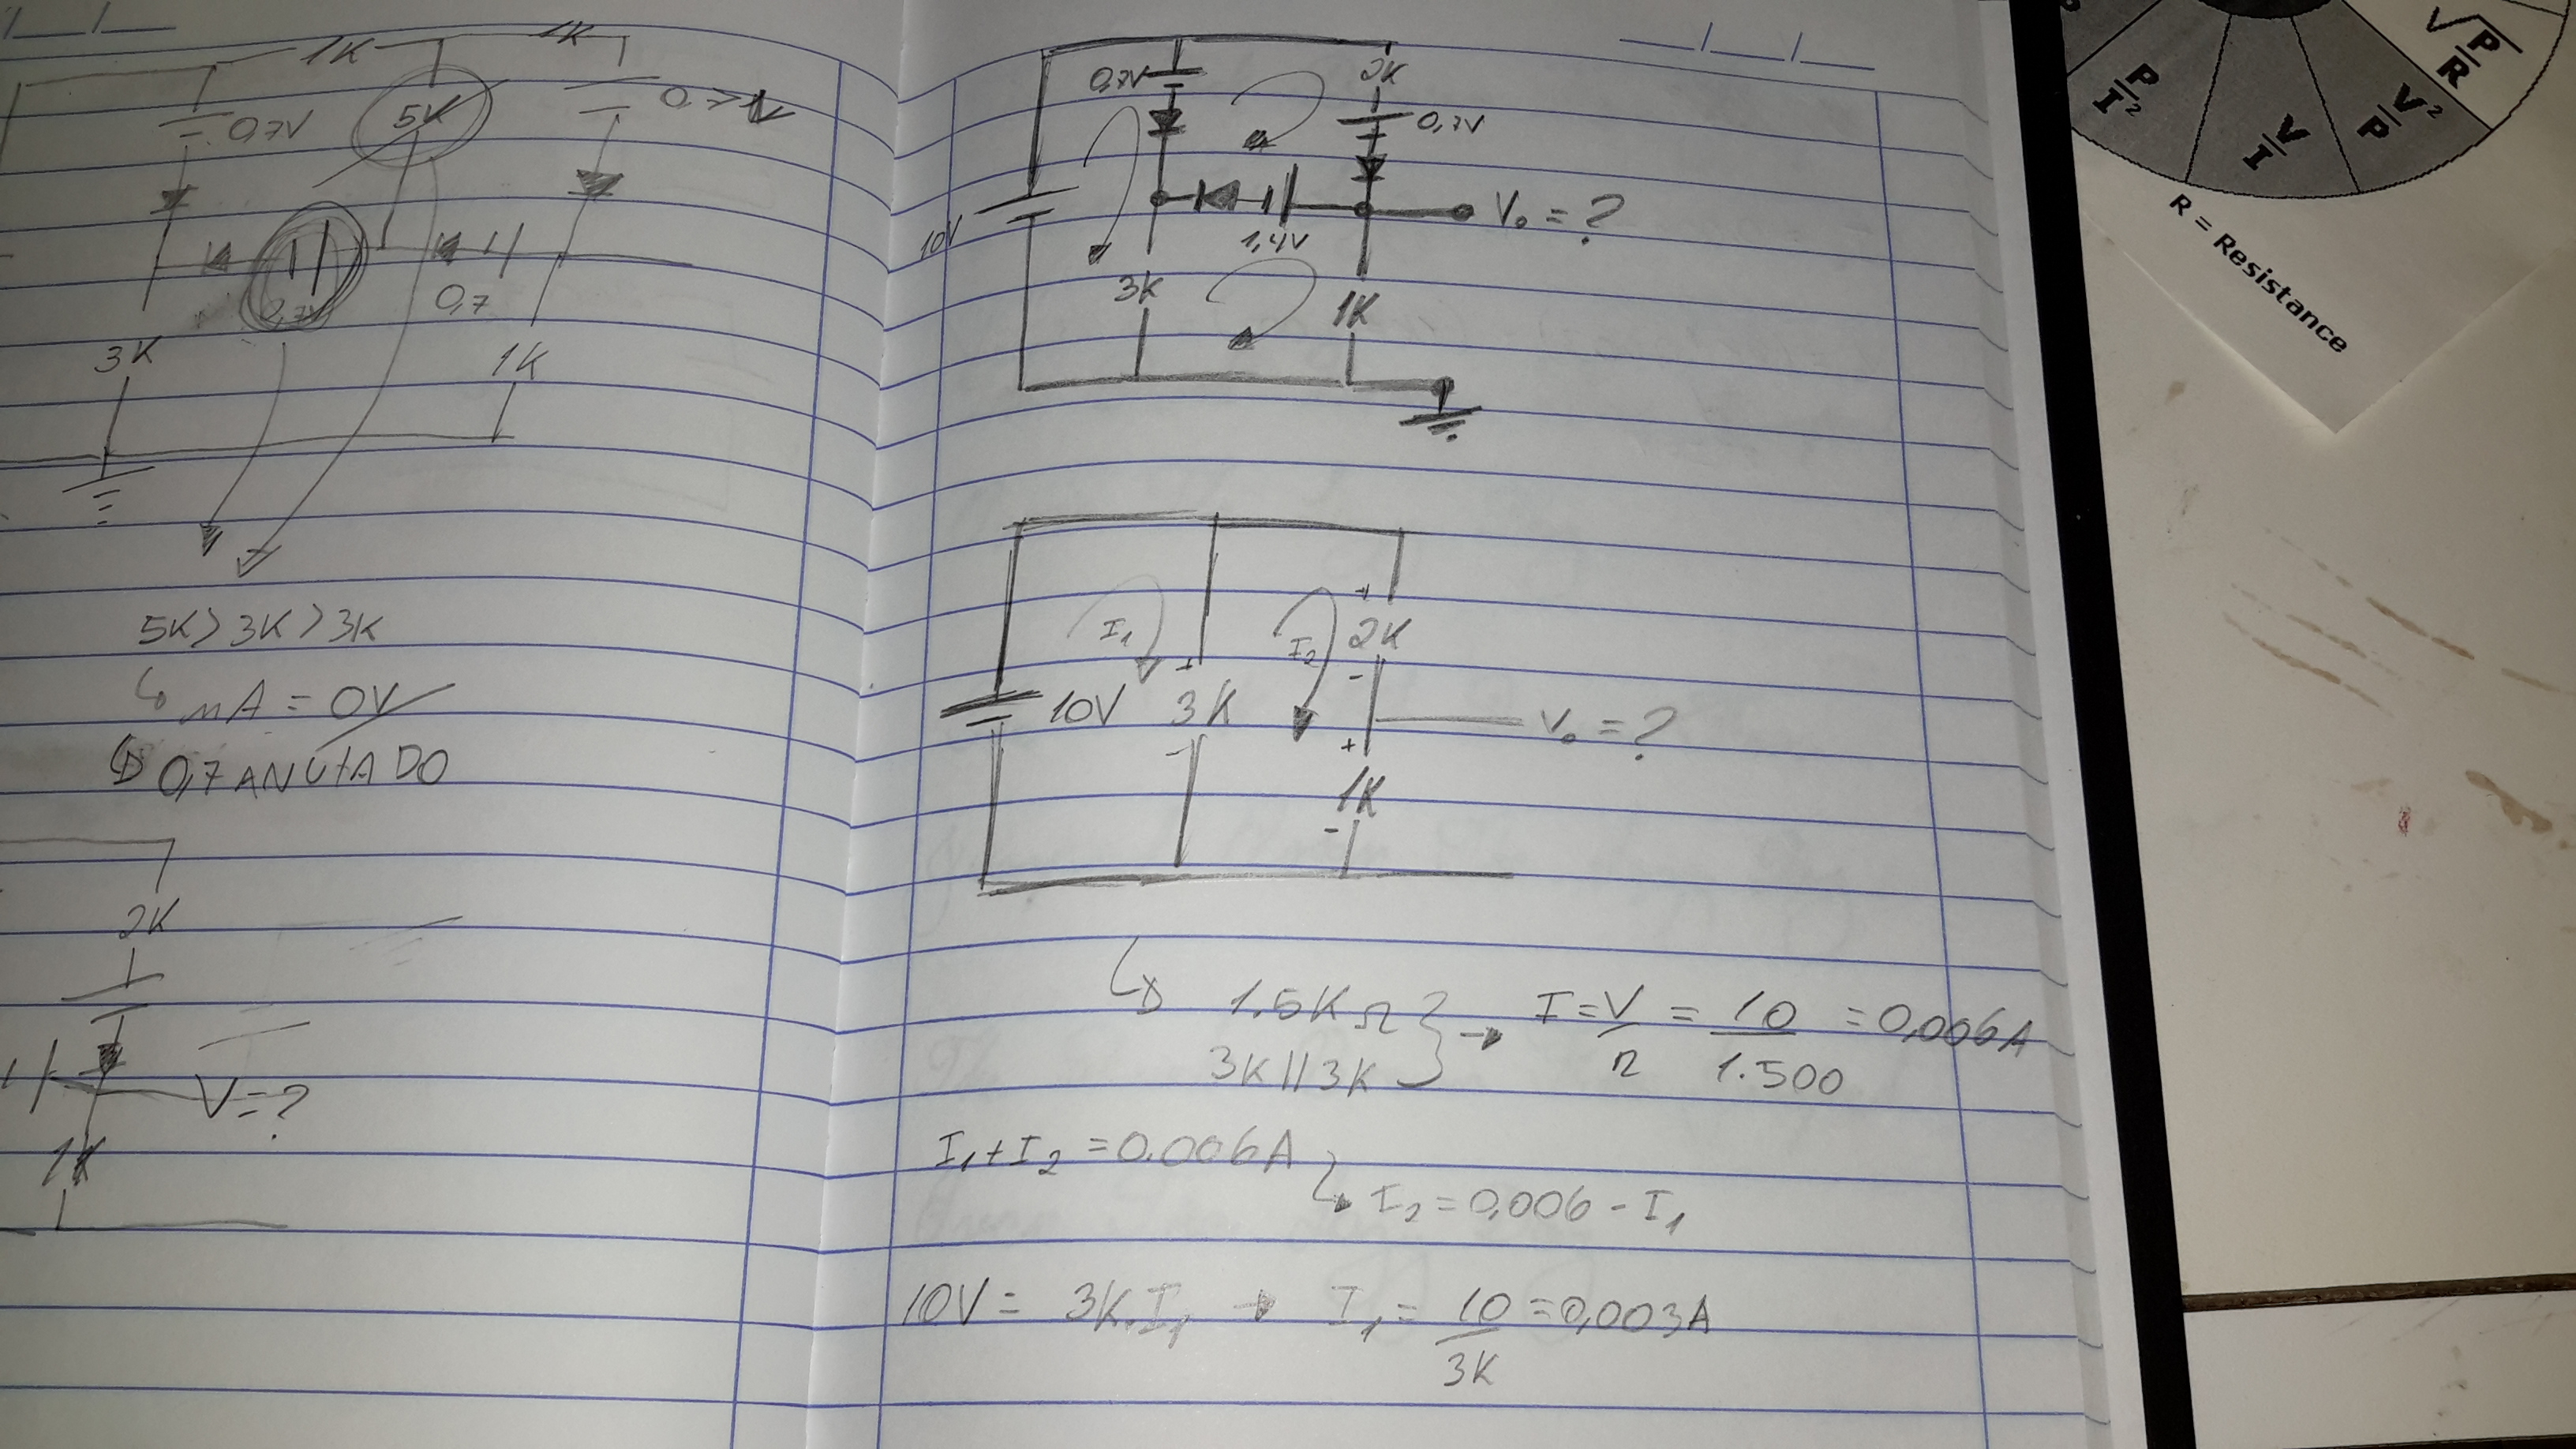 1K 1K
0,7V 5K 0.7V
0,7V 0,7
3K 1K
5K > 3K > 3K
mA = 0V
0,7 ANULADO
2K
V=?
1K
0,7V 2K
0,7V
10V 1,4V Vo = ?
3K 1K
I1 I2 2K
10V 3K Vo = ?
1K
1.5KΩ
3K//3K
I = V/R = 10/1.500 = 0,006A
I1 + I2 = 0.006A
I2 = 0,006 - I1
10V = 3K.I1 → I1 = 10/3K = 0,003A
P/I²
V/I
V²/P
√P/R
R = Resistance